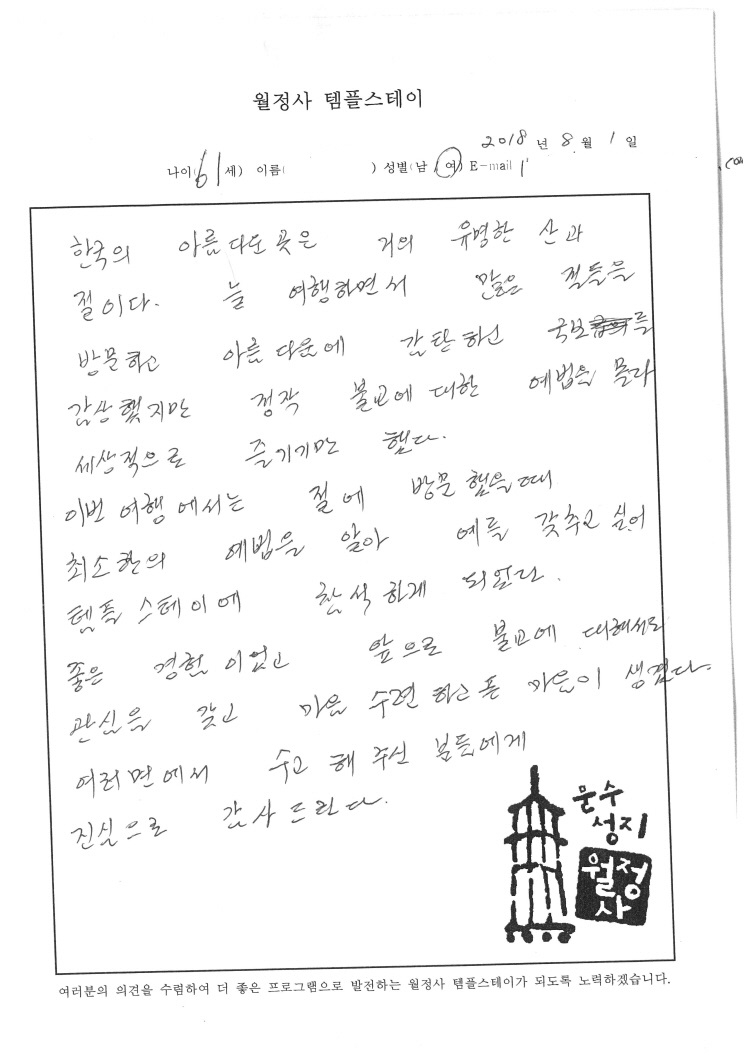 월정사 템플스테이
2018 년 8 월 1 일
나이( 61 세) 이름( ) 성별(남 여) E-mail
한국의 아름다운 곳은 거의 유명한 산과
절이다. 늘 여행하면서 많은 절들을
방문하고 아름다움에 감탄하고 국보를
감상했지만 정작 불교에 대한 예법을 몰라
세상적으로 즐기기만 했다.
이번 여행에서는 절에 방문했을때
최소한의 예법을 알아 예를 갖추고 싶어
템플스테이에 참석하게 되었다.
좋은 경험이었고 앞으로 불교에 대해서도
관심을 갖고 마음 수련하고픈 마음이 생겼다.
여러면에서 수고해 주신 분들에게
진심으로 감사드린다.
문수
성지
월정
사
여러분의 의견을 수렴하여 더 좋은 프로그램으로 발전하는 월정사 템플스테이가 되도록 노력하겠습니다.